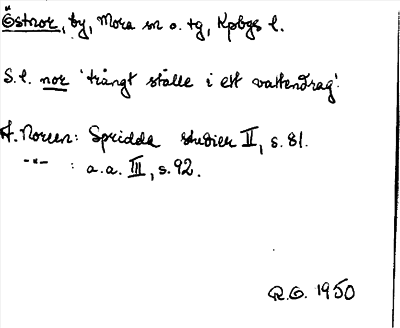 Östnor, by, Mora sn o. tg, Kpbgs l.
S.l. nor 'trångt ställe i ett vattendrag'.
A. Noreen: Spridda studier II, s. 81.
-"- : a.a. III, s. 92.
R.O. 1950